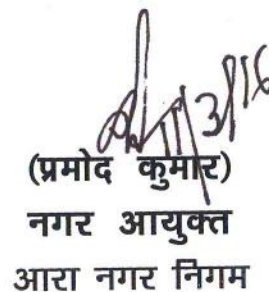 (प्रमोद कुमार)
नगर आयुक्त
आरा नगर निगम